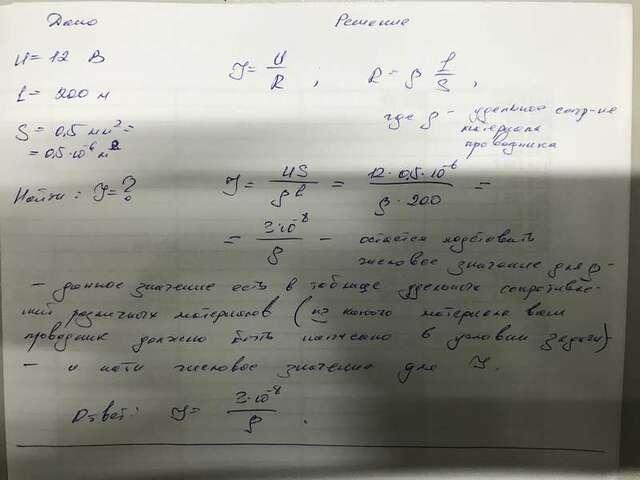 Дано
U = 12 В
L = 200 м
S = 0,5 мм² =
= 0,5·10⁻⁶ м²
Найти: J = ?
Решение
J = U/R, R = ρ l/S,
где ρ - удельное сопр-ие
материала
проводника
J = US/ρl = 12·0,5·10⁻⁶/ρ·200 =
= 3·10⁻⁸/ρ - остается подставить
числовое значение для ρ -
- данное значение есть в таблице удельных сопротивле-
ний различных материалов (из какого материала ваш
проводник должно быть написано в условии задачи)
- и найти числовое значение для J.
Ответ: J = 3·10⁻⁸/ρ.